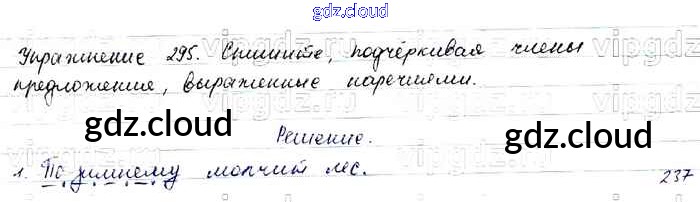 gdz.cloud
Упражнение 295. Спишите, подчёркивая члены
предложение, выраженные наречиями.
gdz.cloud
gdz.cloud
Решение.
1. По-зимнему молчит лес.
237